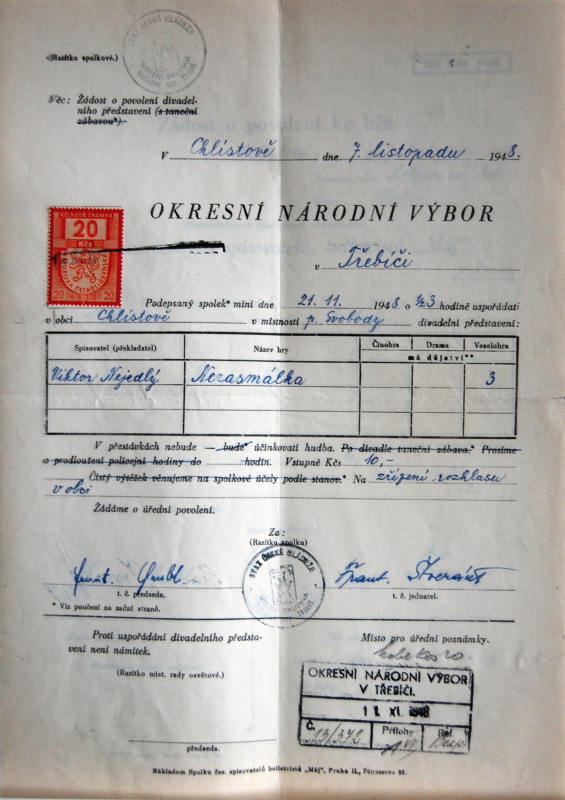 SVAZ ČESKÉ MLÁDEŽE
(Razítko spolkové.)
Věc: Žádost o povolení divadel-
ního představení (s taneční
zábavou*).
V Chlístově dne 7. listopadu 1948.
KOLKOVÁ ZNÁMKA
20
Kčs
20 20
OKRESNÍ NÁRODNÍ VÝBOR
v Třebíči
Podepsaný spolek* míní dne 21. 11. 1948 o ½3 hodině uspořádati
v obci Chlístově v místnosti p. Svobody divadelní představení:
Spisovatel (překladatel) Název hry Činohra Drama Veselohra
má dějství**
Viktor Nejedlý Nezasmálka 3
V přestávkách nebude — bude* účinkovati hudba. Po divadle taneční zábava.* Prosíme
o prodloužení policejní hodiny do hodin. Vstupné Kčs 10,-
Čistý výtěžek věnujeme na spolkové účely podle stanov.* Na zřízení rozhlasu
v obci
Žádáme o úřední povolení.
Za:
(Razítko spolku)
SVAZ ČESKÉ MLÁDEŽE
Frant.
t. č. předseda. t. č. jednatel.
* Viz poučení na zadní straně.
Proti uspořádání divadelního předsta-
vení není námitek.
(Razítko míst. rady osvětové.)
předseda.
Místo pro úřední poznámky.
OKRESNÍ NÁRODNÍ VÝBOR
V TŘEBÍČI.
11. XI. 1948
Č. 13/372 Přílohy Ref.
Nákladem Spolku čes. spisovatelů beletristů „Máj", Praha II., Pštrossova 23.